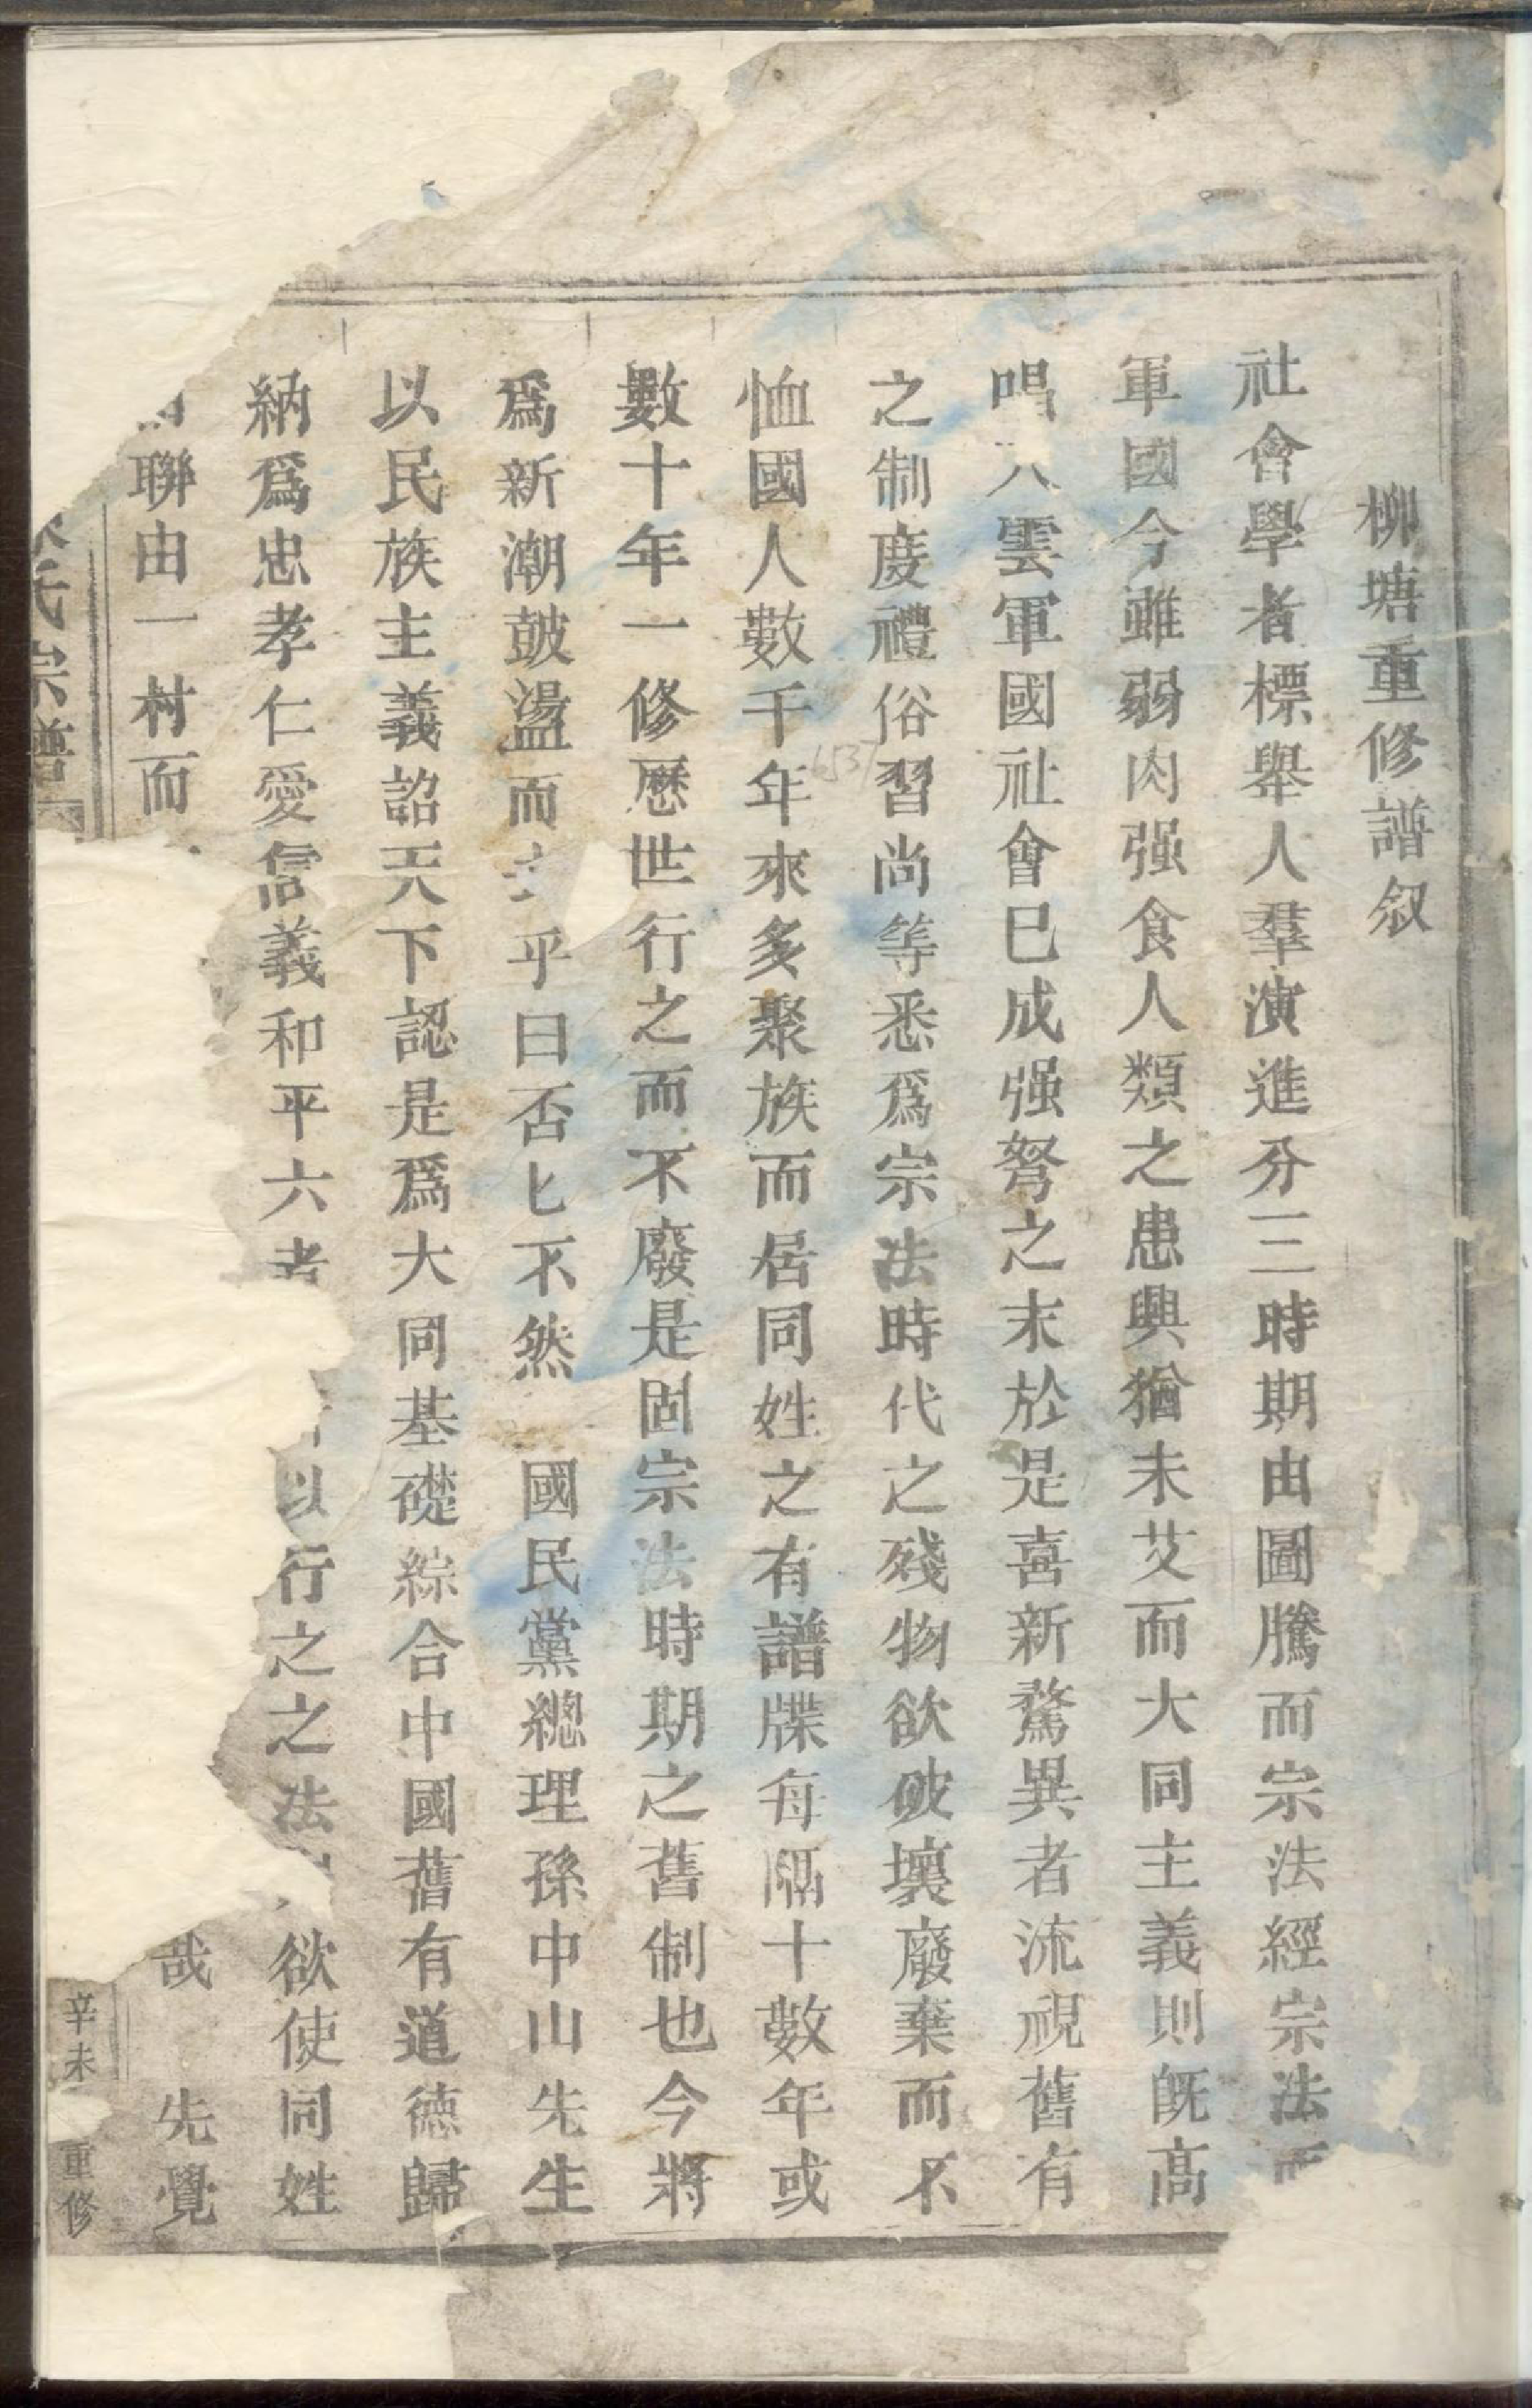 柳塘重修譜叙
社會學者標舉人羣演進分三時期由圖騰而宗法經宗法而
軍國今雖弱肉强食人類之患興猶未艾而大同主義則旣高
唱入雲軍國社會已成强弩之末於是喜新驁異者流視舊有
之制度禮俗習尚等悉爲宗法時代之殘物欲破壞廢棄而不
恤國人數千年來多聚族而居同姓之有譜牒每隔十數年或
數十年一修歷世行之而不廢是固宗法時期之舊制也今將
爲新潮鼓盪而 乎曰否匕不然 國民黨總理孫中山先生
以民族主義詔天下認是爲大同基礎綜合中國舊有道德歸
納爲忠孝仁愛信義和平六者 以行之之法 欲使同姓
聯由一村而 哉 先覺
氏宗譜 辛未 重修